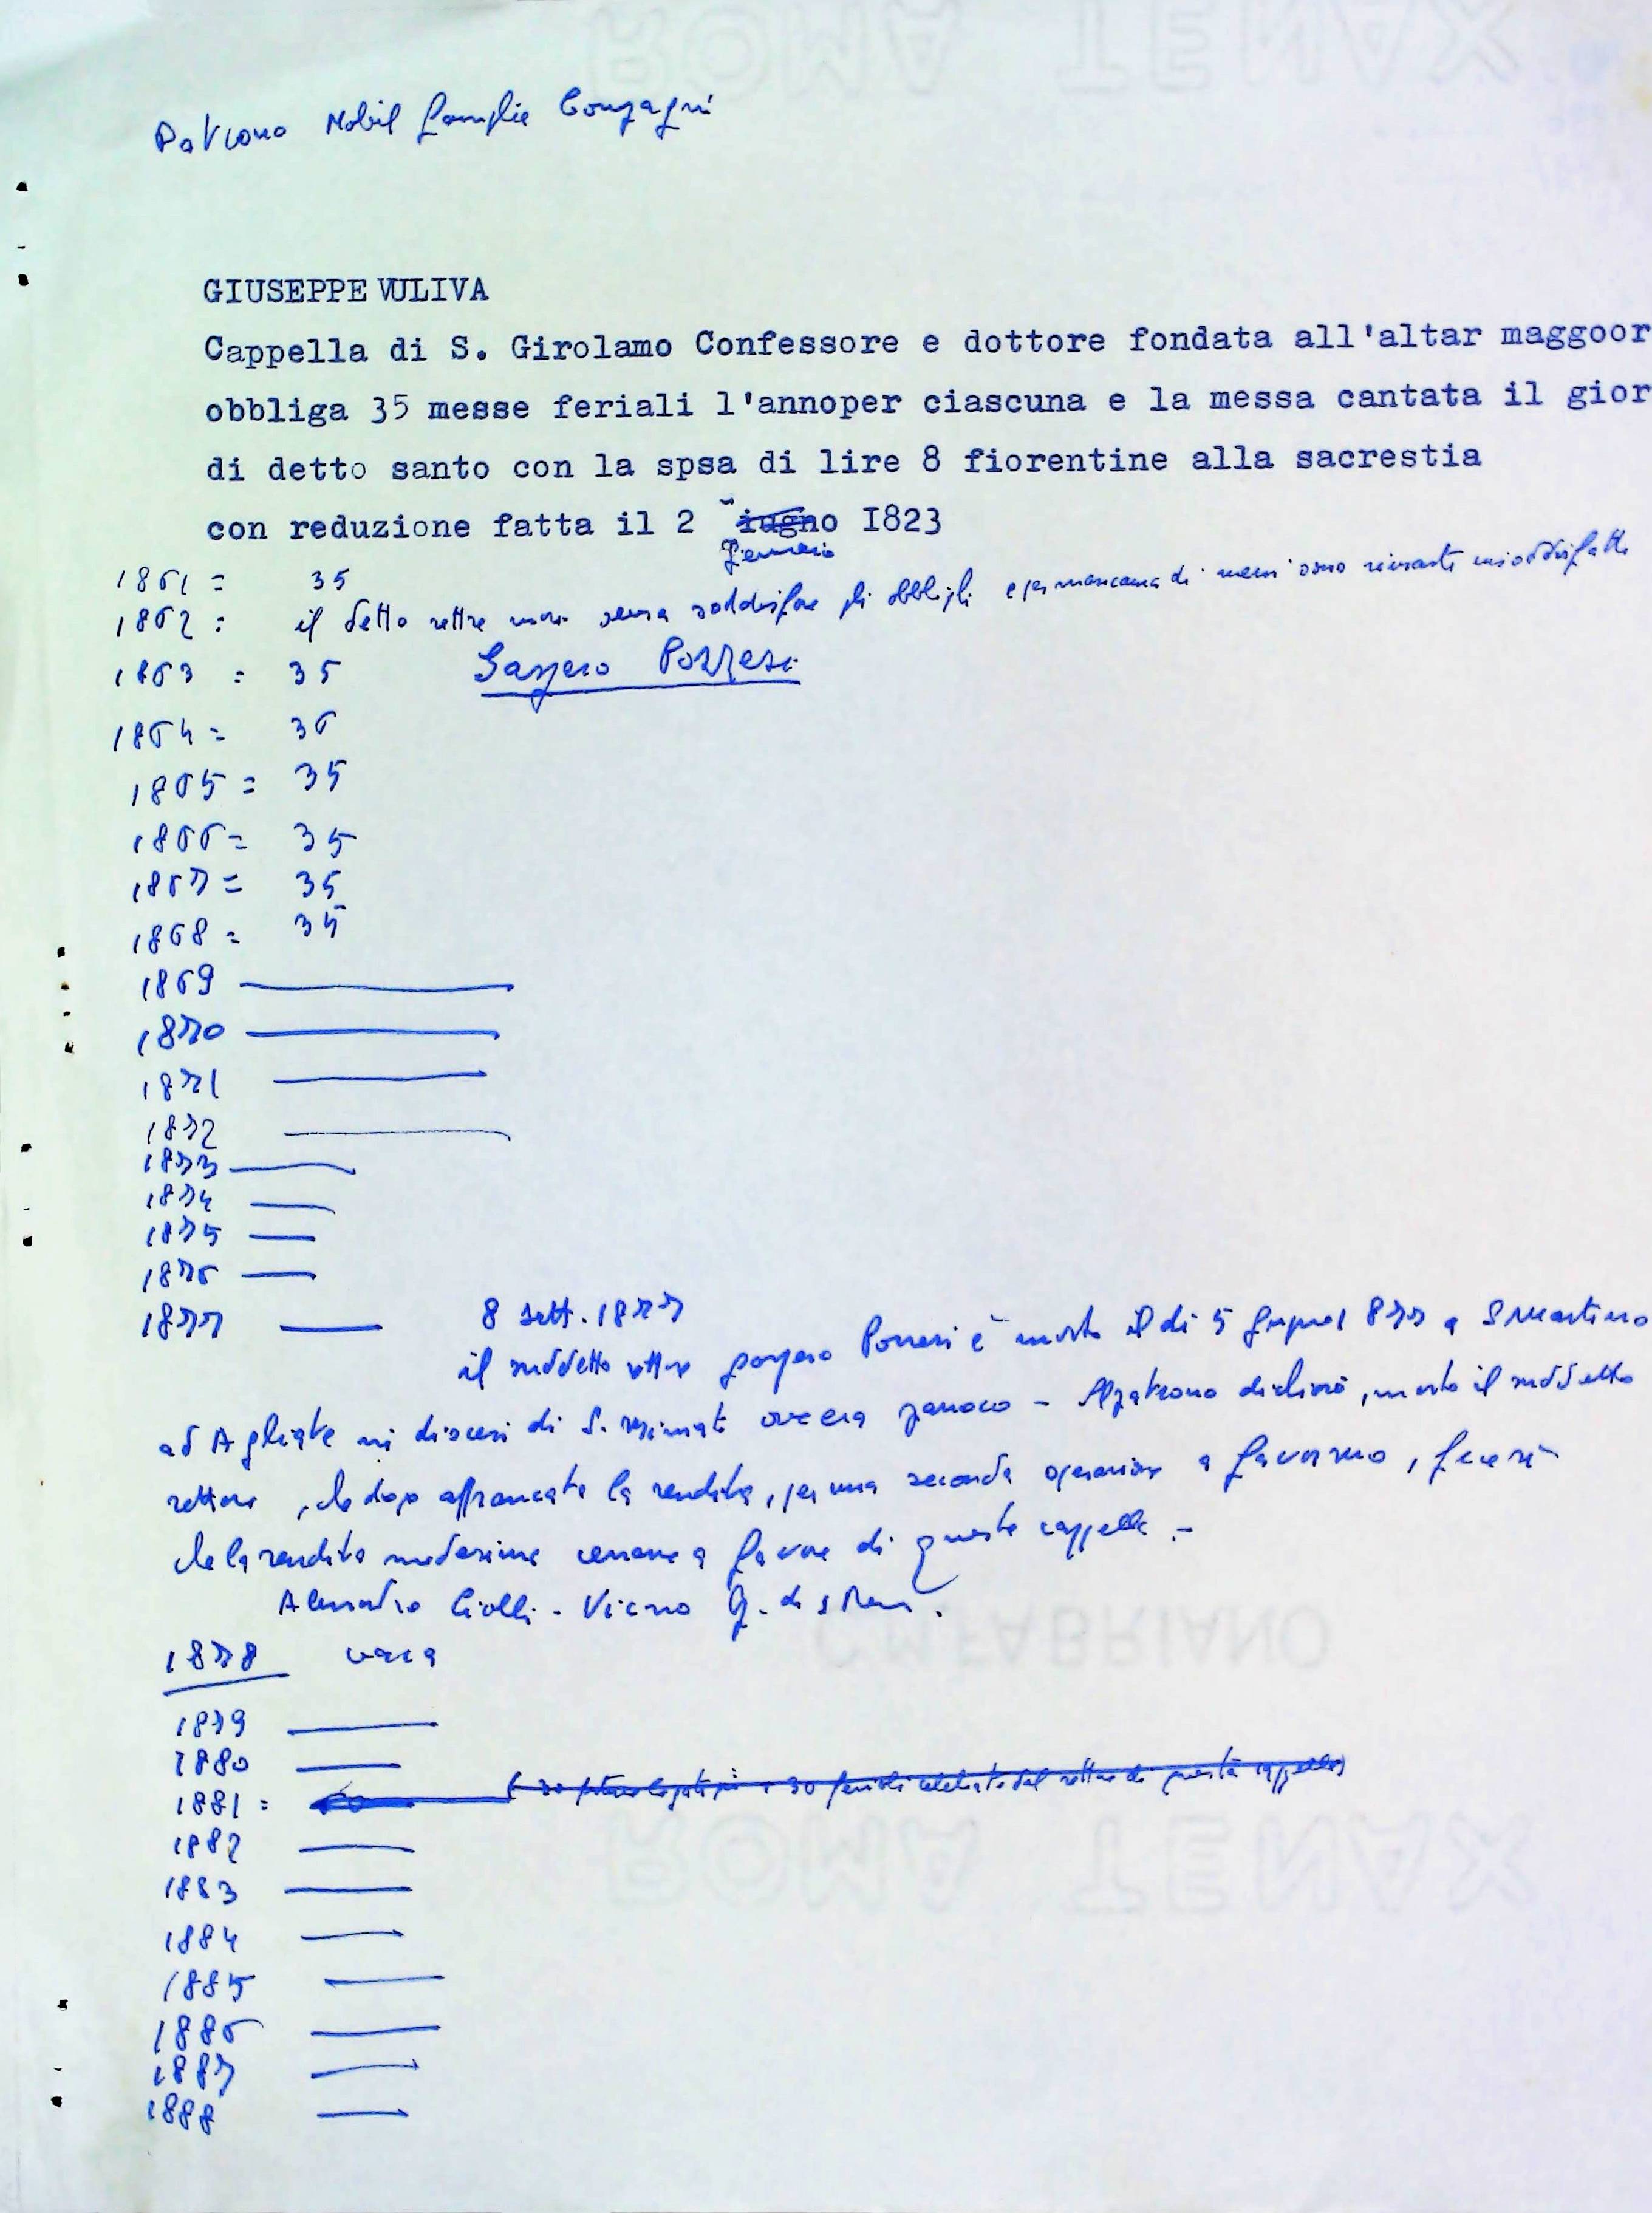 ROMA TENAX
Patrono Nobil famiglia Compagni
GIUSEPPE VULIVA
Cappella di S. Girolamo Confessore e dottore fondata all'altar maggoor
obbliga 35 messe feriali l'annoper ciascuna e la messa cantata il gior
di detto santo con la spsa di lire 8 fiorentine alla sacrestia
con reduzione fatta il 2 iugno I823
Gennaio
1861 = 35
1862 = il detto rettore morì senza soddisfare gli obblighi e per mancanza di mezzi sono rimasti insoddisfatti
1863 = 35 Gaspero Pozzesi
1864 = 36
1865 = 35
1866 = 35
1867 = 35
1868 = 35
1869
1870
1871
1872
1873
1874
1875
1876
1877 8 sett. 1877
il suddetto rettore gaspero Pozzesi è morto il di 5 giugno 1877 a S Martino
ad Agliate in diocesi di S. Miniato ove era parroco - Il patrono dichiarò, morto il suddetto
rettore, che dopo affrancata la rendita, per una seconda operazione a favor suo, fece sì
che la rendita medesima cessasse a favore di questa cappella.-
Alessandro Ciolli - Vicario
C.M.FABRIANO
1878 vaca
1879
1880
1881 = 60 30 30 feriali celebrate dal rettore di questa cappella)
1882
ROMA TENAX
1883
1884
1885
1886
1887
1888